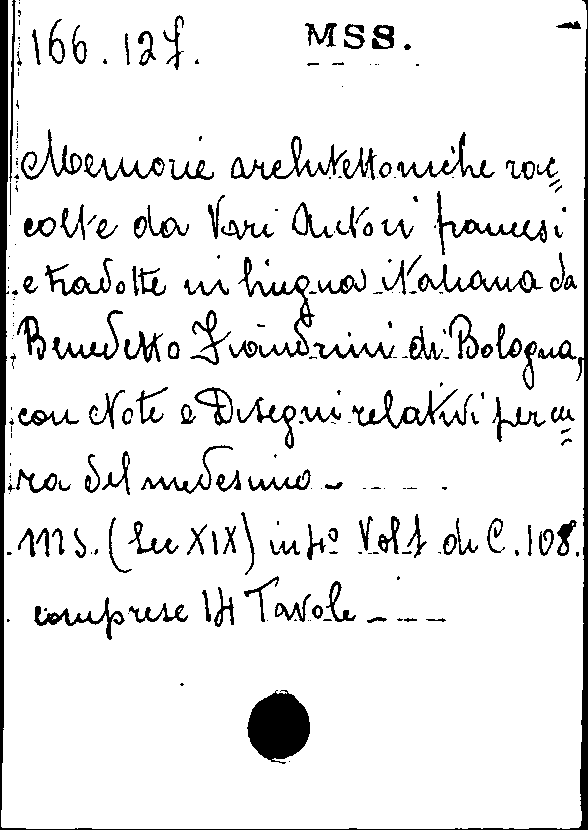 166.127. MSS.
Memorie architettoniche rac=
colte da Vari Autori francesi
e tradotte in lingua italiana da
Benedetto Fiandrini di Bologna,
con Note e Disegni relativi per cu=
ra del medesimo - - - -
ms. (Sec XIX) in 4º Vol 1 di C. 108.
comprese 14 Tavole - - -